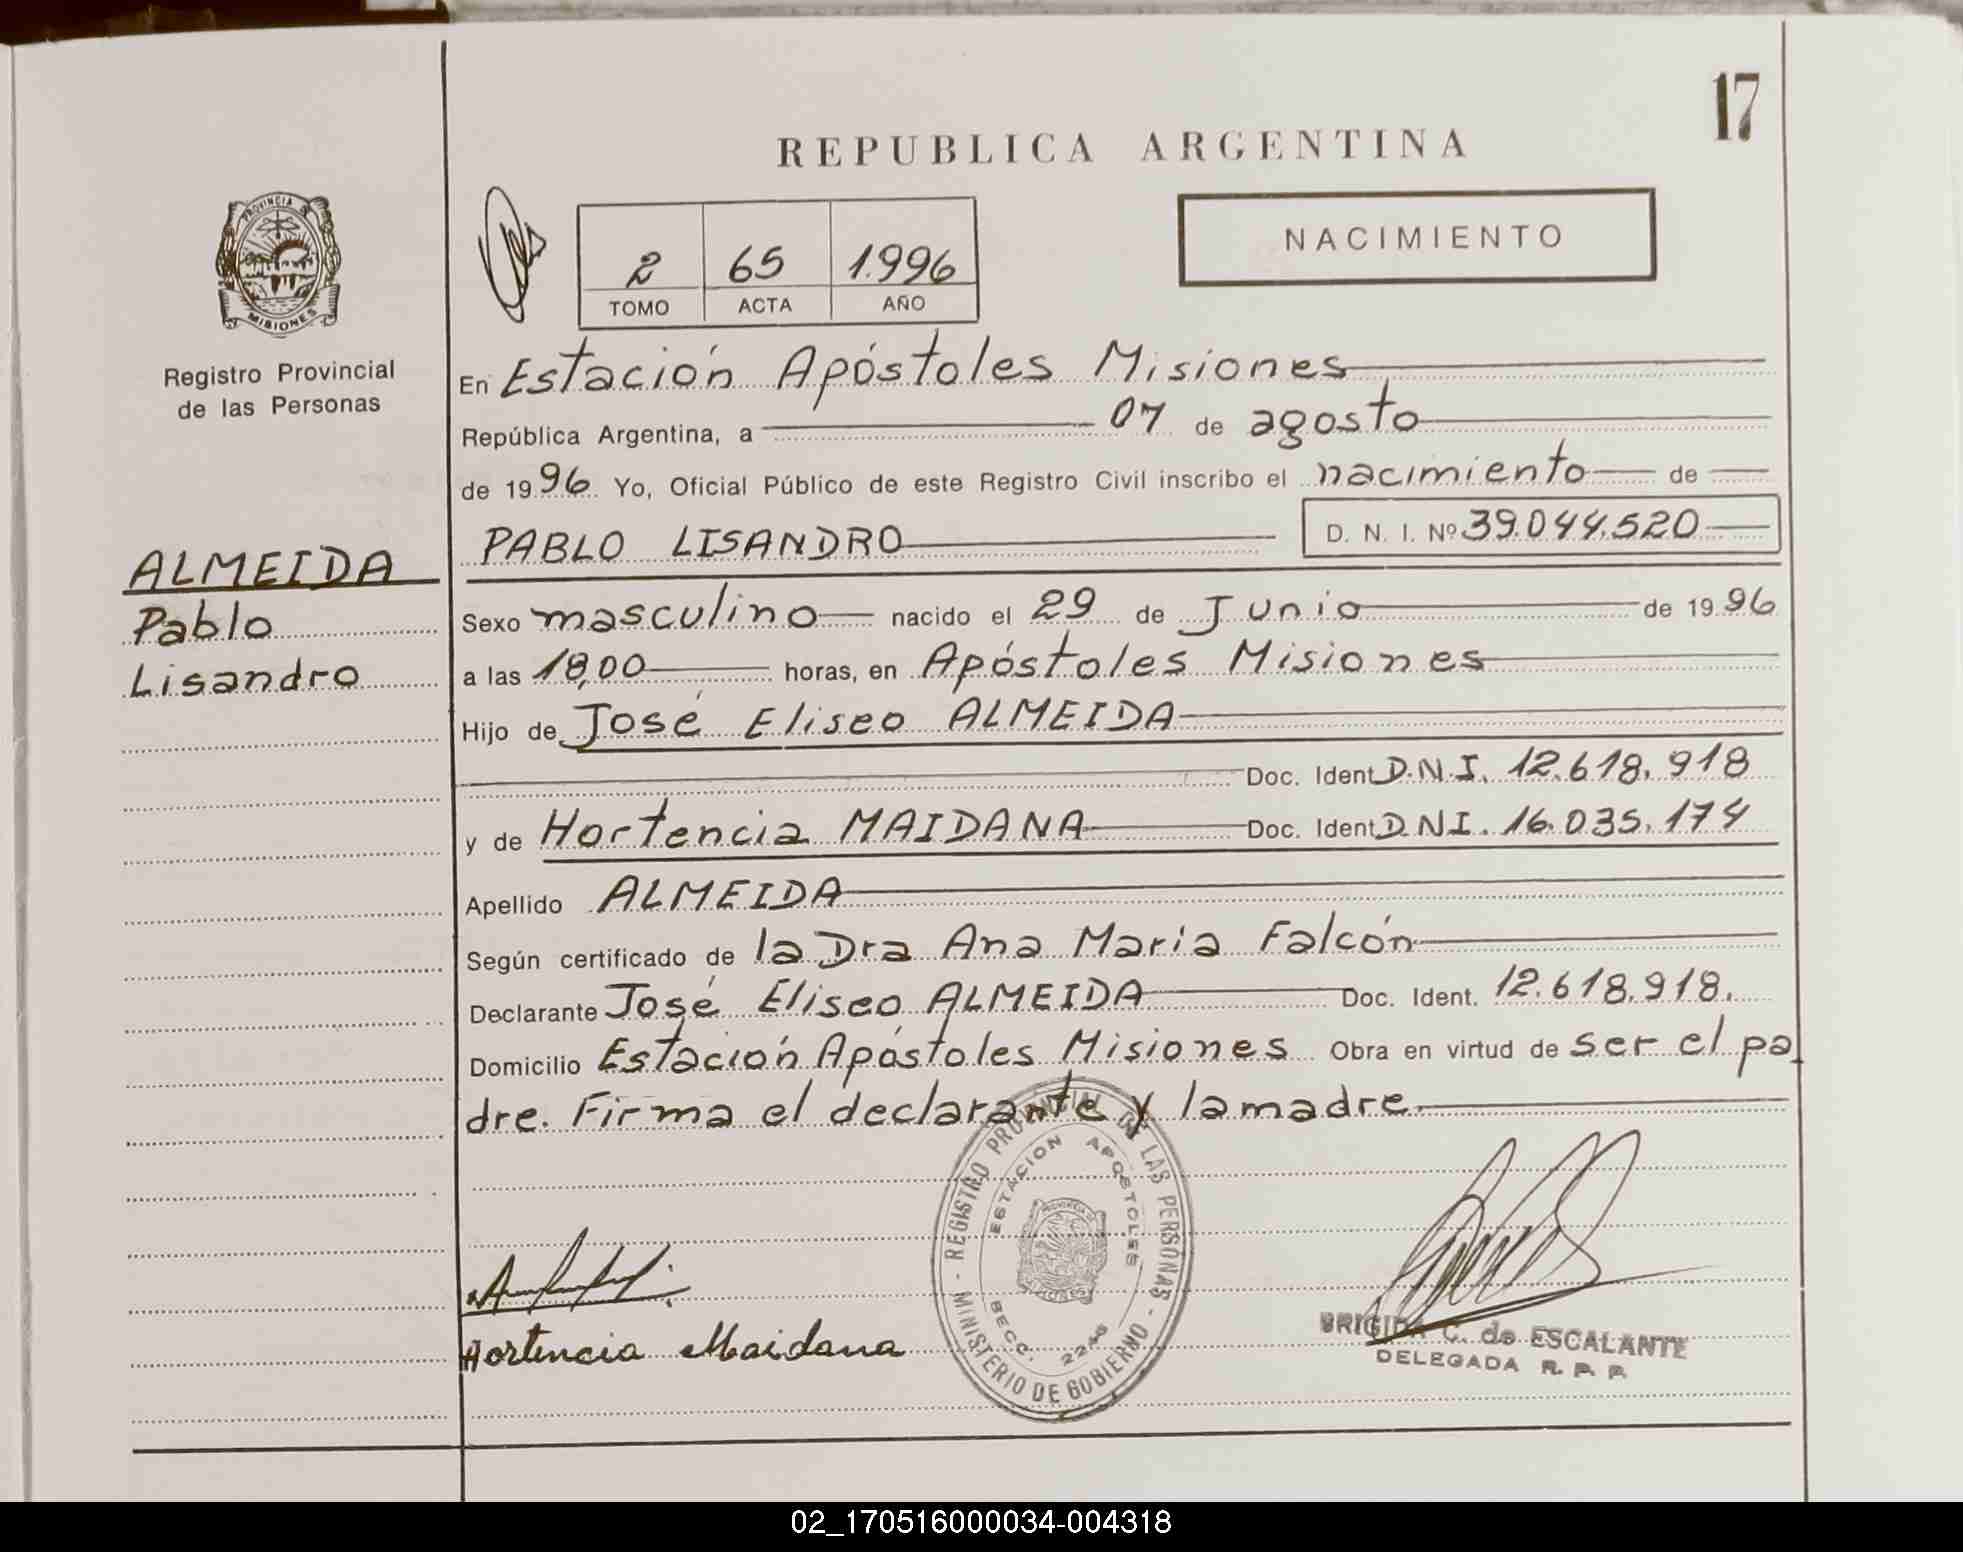 17
REPUBLICA ARGENTINA
NACIMIENTO
2 65 1.996
TOMO ACTA AÑO
PROVINCIA DE
MISIONES
Registro Provincial
de las Personas
En Estación Apóstoles Misiones
República Argentina, a 07 de agosto
de 1996 Yo, Oficial Público de este Registro Civil inscribo el nacimiento de
PABLO LISANDRO D. N. I. Nº 39.044.520
ALMEIDA
Pablo
Lisandro
Sexo masculino nacido el 29 de Junio de 1996
a las 18,00 horas, en Apóstoles Misiones
Hijo de José Eliseo ALMEIDA
Doc. Ident D.N.I. 12.618.918
y de Hortencia MAIDANA Doc. Ident D.NI. 16.035.174
Apellido ALMEIDA
Según certificado de la Dra Ana Maria Falcón
Declarante José Eliseo ALMEIDA Doc. Ident. 12.618.918.
Domicilio Estación Apóstoles Misiones Obra en virtud de ser el pa
dre. Firma el declarante y la madre.
REGISTRO PROVINCIAL DE LAS PERSONAS - MINISTERIO DE GOBIERNO -
ESTACION APOSTOLES
SECC. 2246
Hortencia Maidana
BRIGIDA C. de ESCALANTE
DELEGADA R. P. P.
02_170516000034-004318